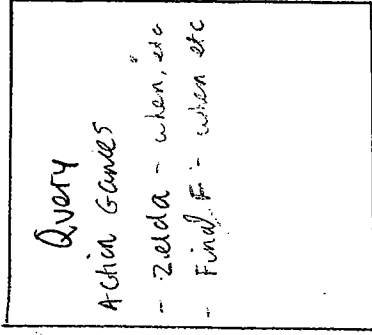 Query
Action Games
- Zelda - when, etc
- Final F - when etc